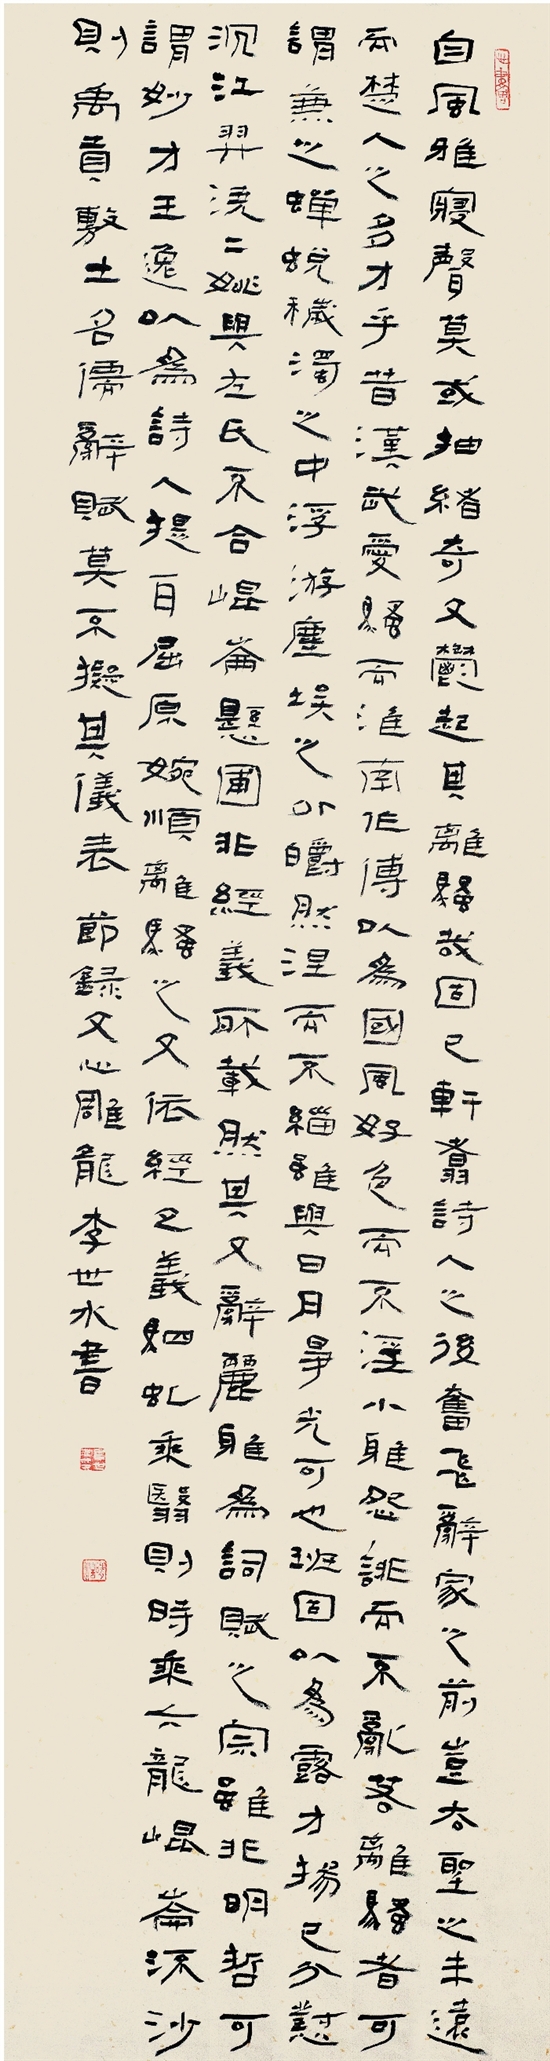 自風雅寢聲莫或抽緒奇文鬱起其離騷哉固已軒翥詩人之後奮飛辭家之前豈去聖之未遠
而楚人之多才乎昔漢武愛騷而淮南作傳以為國風好色而不淫小雅怨誹而不亂若離騷者可
謂兼之蟬蛻穢濁之中浮游塵埃之外皭然涅而不緇雖與日月爭光可也班固以為露才揚己忿懟
沉江羿澆二姚與左氏不合崐崙懸圃非經義所載然其文辭麗雅為詞賦之宗雖非明哲可
謂妙才王逸以為詩人提耳屈原婉順離騷之文依經立義駟虬乘翳則時乘六龍崐崙流沙
則禹貢敷土名儒辭賦莫不擬其儀表 節錄文心雕龍 李世水書